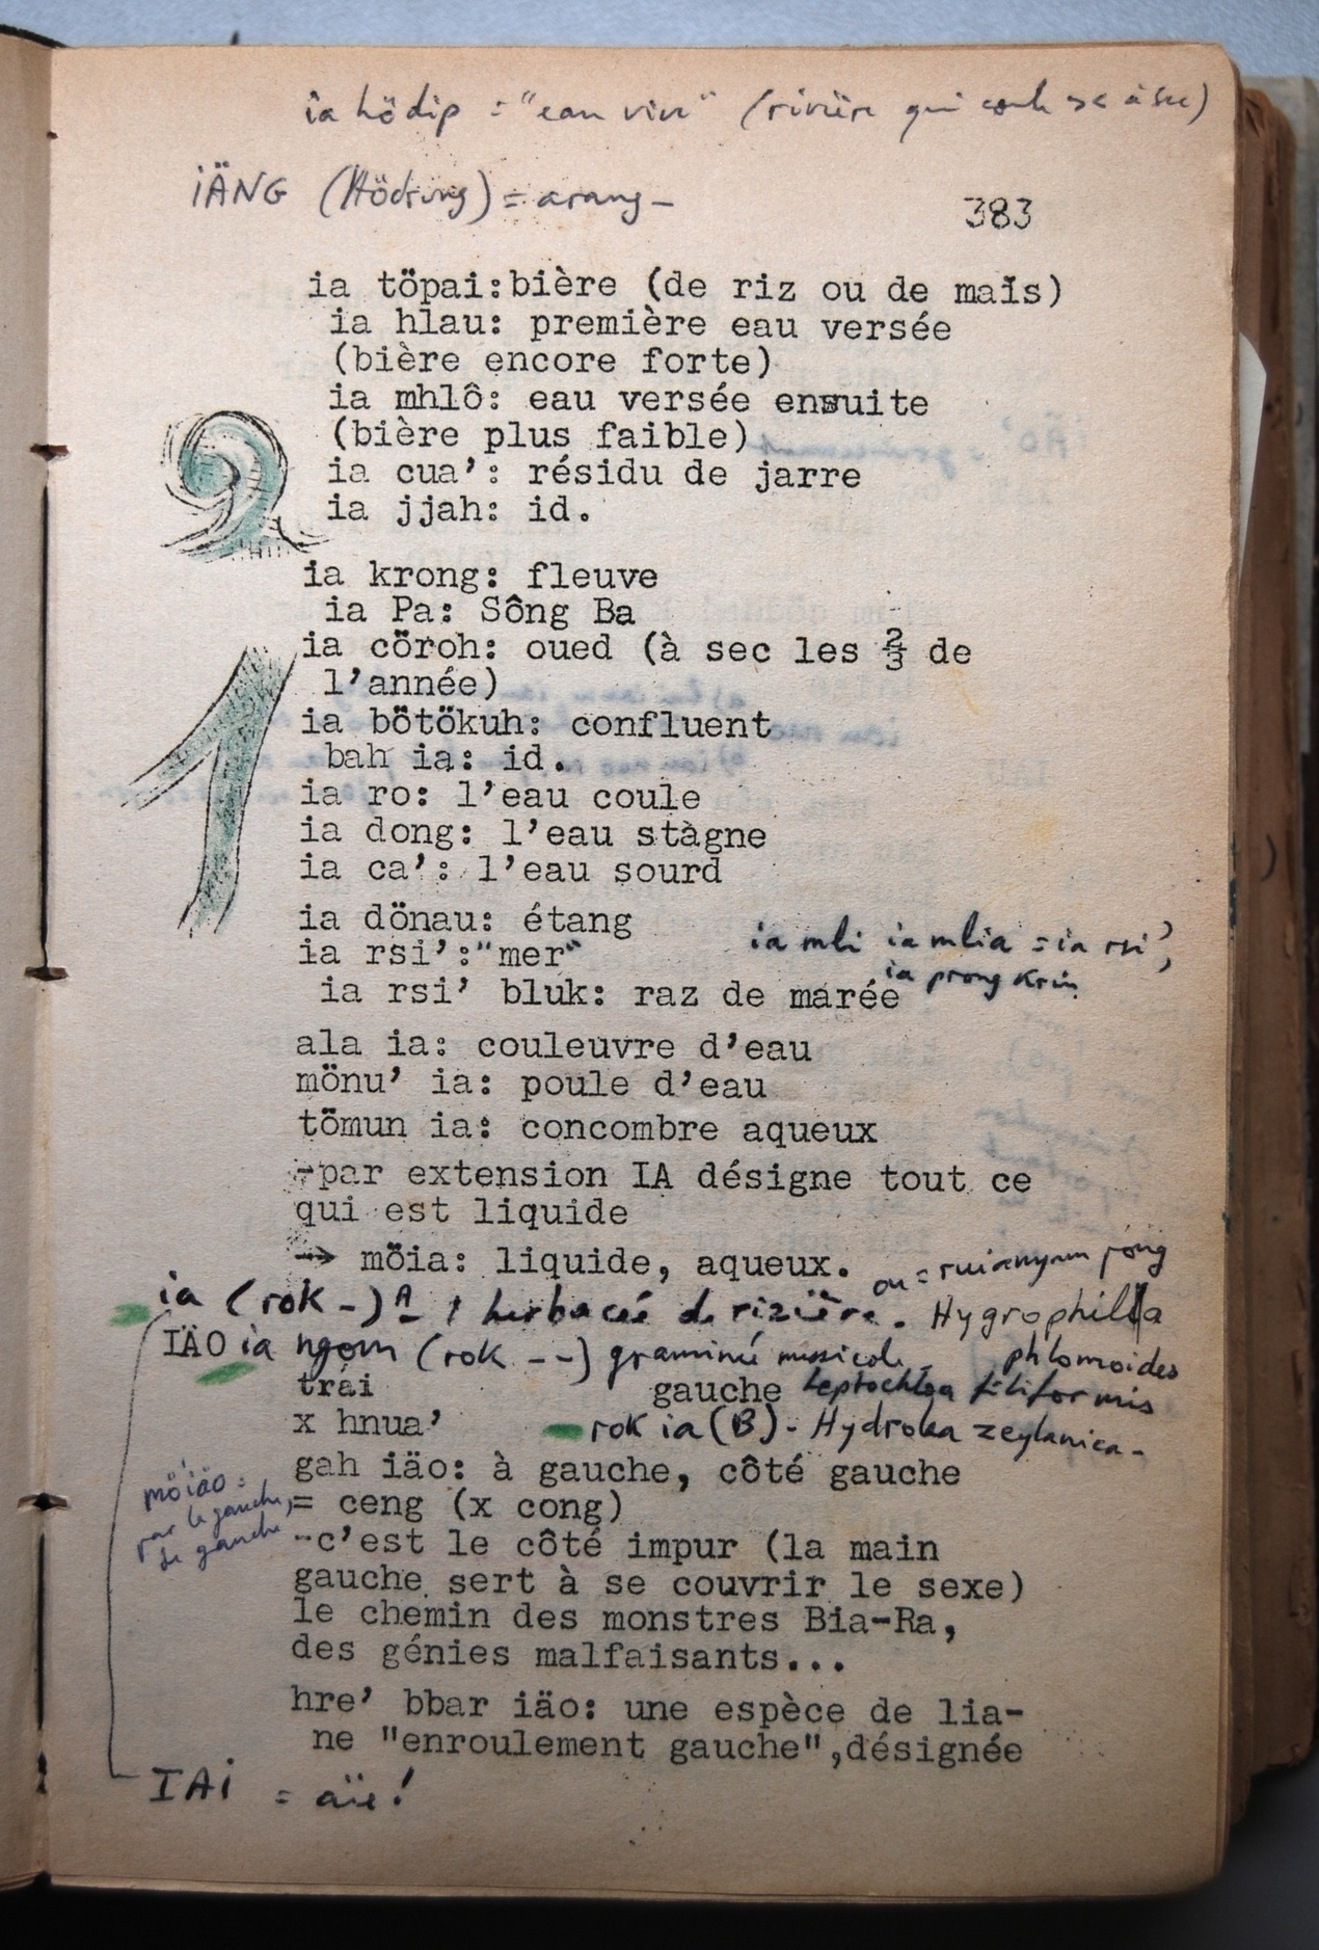 ia hödip = "eau vive" (rivière qui coule >< à sec)
IÄNG (Hödrung) = arang -
383
ia töpai:bière (de riz ou de maïs)
ia hlau: première eau versée
(bière encore forte)
ia mhlô: eau versée ensuite
(bière plus faible)
ia cua': résidu de jarre
ia jjah: id.
ia krong: fleuve
ia Pa: Sông Ba
ia cöroh: oued (à sec les 2/3 de
l'année)
ia bötökuh: confluent
bah ia: id.
ia ro: l'eau coule
ia dong: l'eau stàgne
ia ca': l'eau sourd
ia dönau: étang
ia rsi':"mer"
ia mli ia mlia = ia rsi',
ia prong krin
ia rsi' bluk: raz de marée
ala ia: couleuvre d'eau
mönu' ia: poule d'eau
tömun ia: concombre aqueux
-par extension IA désigne tout ce
qui est liquide
→ möia: liquide, aqueux.
ou =
ia (rok -) A - 1 herbacée de rizière. Hygrophilla
phlomoides
IÄO ia ngom (rok --) graminée
trái gauche Leptochloa filiformis
x hnua' rok ia (B) - Hydrolea zeylanica -
gah iäo: à gauche, côté gauche
möiäo =
par la gauche,
de gauche
= ceng (x cong)
-c'est le côté impur (la main
gauche sert à se couvrir le sexe)
le chemin des monstres Bia-Ra,
des génies malfaisants...
hre' bbar iäo: une espèce de lia-
ne "enroulement gauche",désignée
IAI = aïe!